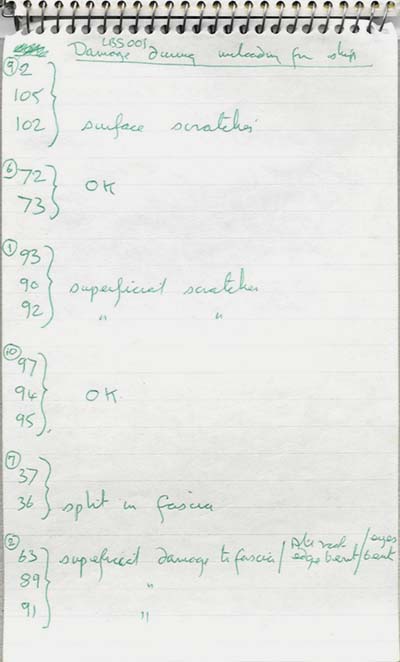 LBS001
Damage during unloading from ship
⑨ 2
105
102 } surface scratches
⑥ 72
73 } OK
① 93
90 } superficial scratches
92 " "
⑩ 97
94 } OK
95
⑦ 37
36 } split in fascia
② 63 } superficial damage to fascia / edge bent / bent
89 "
91 "